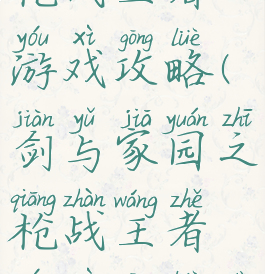 枪战王者
yóu xì gōng lüè
游戏攻略(
jiàn yǔ jiā yuán zhī
剑与家园之
qiāng zhàn wáng zhě
枪战王者